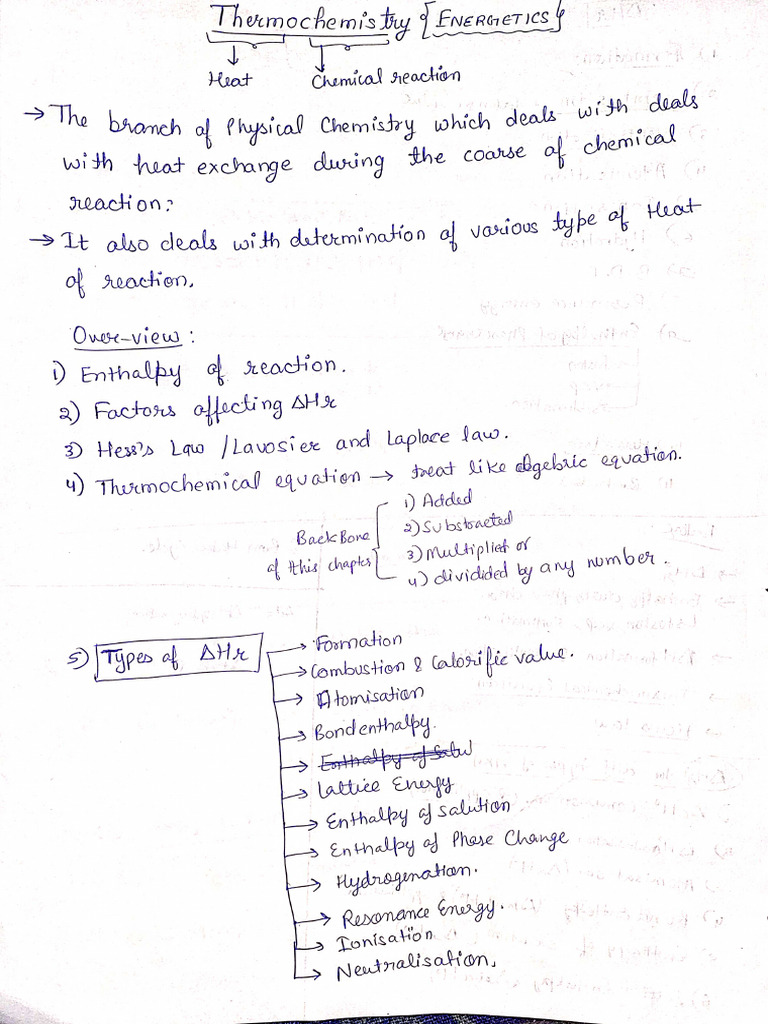 Thermochemistry {ENERGETICS}
Heat Chemical reaction
→ The branch of Physical Chemistry which deals with deals
with heat exchange during the coarse of chemical
reaction:
→ It also deals with determination of various type of Heat
of reaction.
Over-view :
1) Enthalpy of reaction.
2) Factors affecting ΔHr
3) Hess's Law /Lavosier and Laplace law.
4) Thermochemical equation → treat like algebric equation.
BackBone of this chapter
1) Added
2) Substracted
3) Multiplied or
4) dividided by any number.
5) Types of ΔHr
→ Formation
→ Combustion & Calorific value.
→ Atomisation
→ Bond enthalpy.
→ Enthalpy of
→ Lattice Energy
→ Enthalpy of Salution
→ Enthalpy of Phase Change
→ Hydrogenation.
→ Resonance Energy.
→ Ionisation
→ Neutralisation.